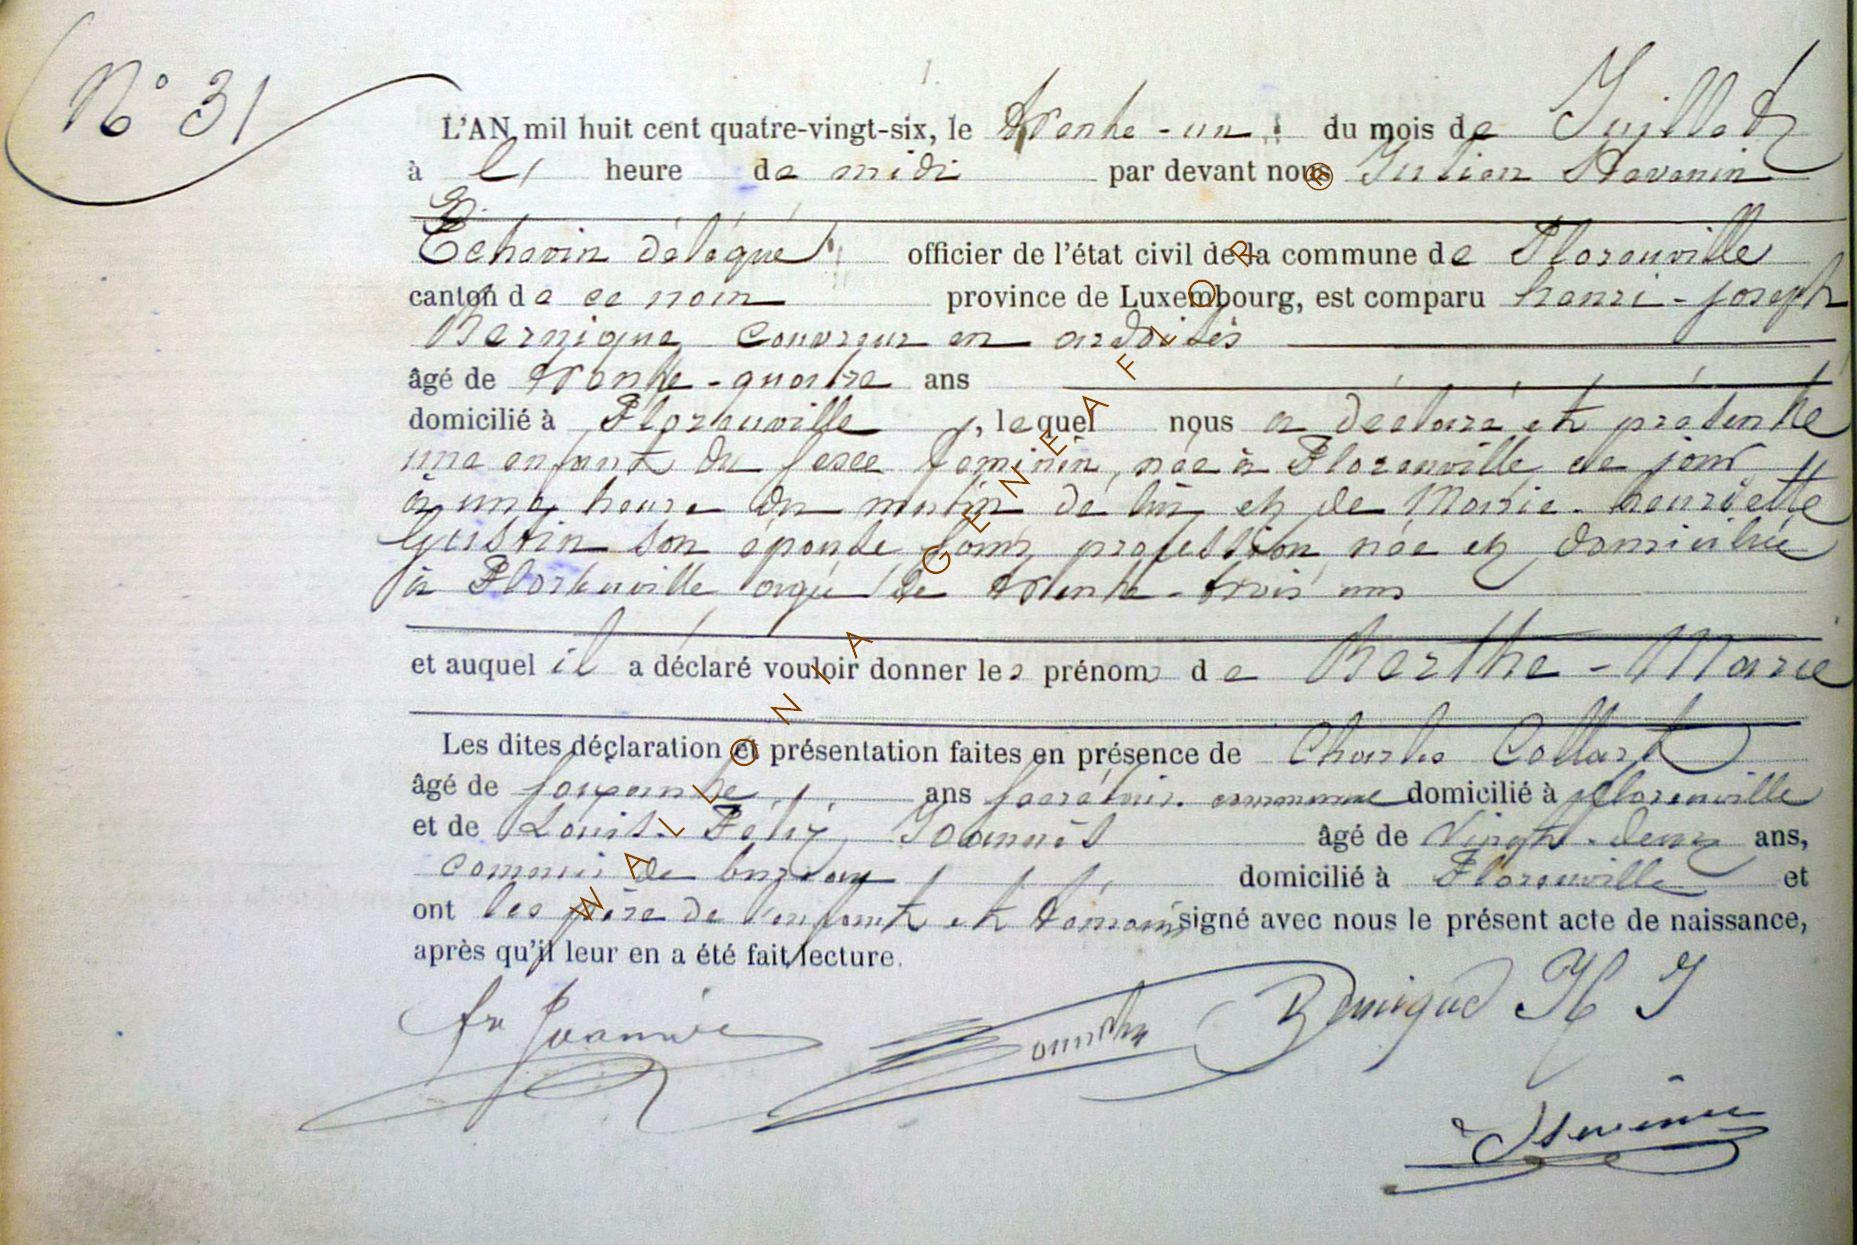 N° 31
L'AN mil huit cent quatre-vingt-six, le trente-un du mois de Juillet
à l' heure de midi par devant nous Julien Stavenin
Echevin délégué officier de l'état civil de la commune de Florenville
canton de ce nom province de Luxembourg, est comparu henri-joseph
couvreur en ardoises
âgé de trente-quatre ans
domicilié à Florenville, lequel nous a déclaré et présenté
une enfant du sexe féminin, née à Florenville ce jour
à une heure du matin de lui et de Marie-henriette
Gustin son épouse sans profession née et domiciliée
à Florenville agée de trente-trois ans
et auquel il a déclaré vouloir donner les prénoms de Berthe-Marie
Les dites déclaration et présentation faites en présence de Charles Collart
âgé de soixante ans secrétaire communal domicilié à Florenville
et de Louis-Félix Joannès âgé de vingt-deux ans,
commis de domicilié à Florenville et
ont les père de l'enfant et témoins signé avec nous le présent acte de naissance,
après qu'il leur en a été fait lecture.
H J
WALLONIA GENEAFLOR ®